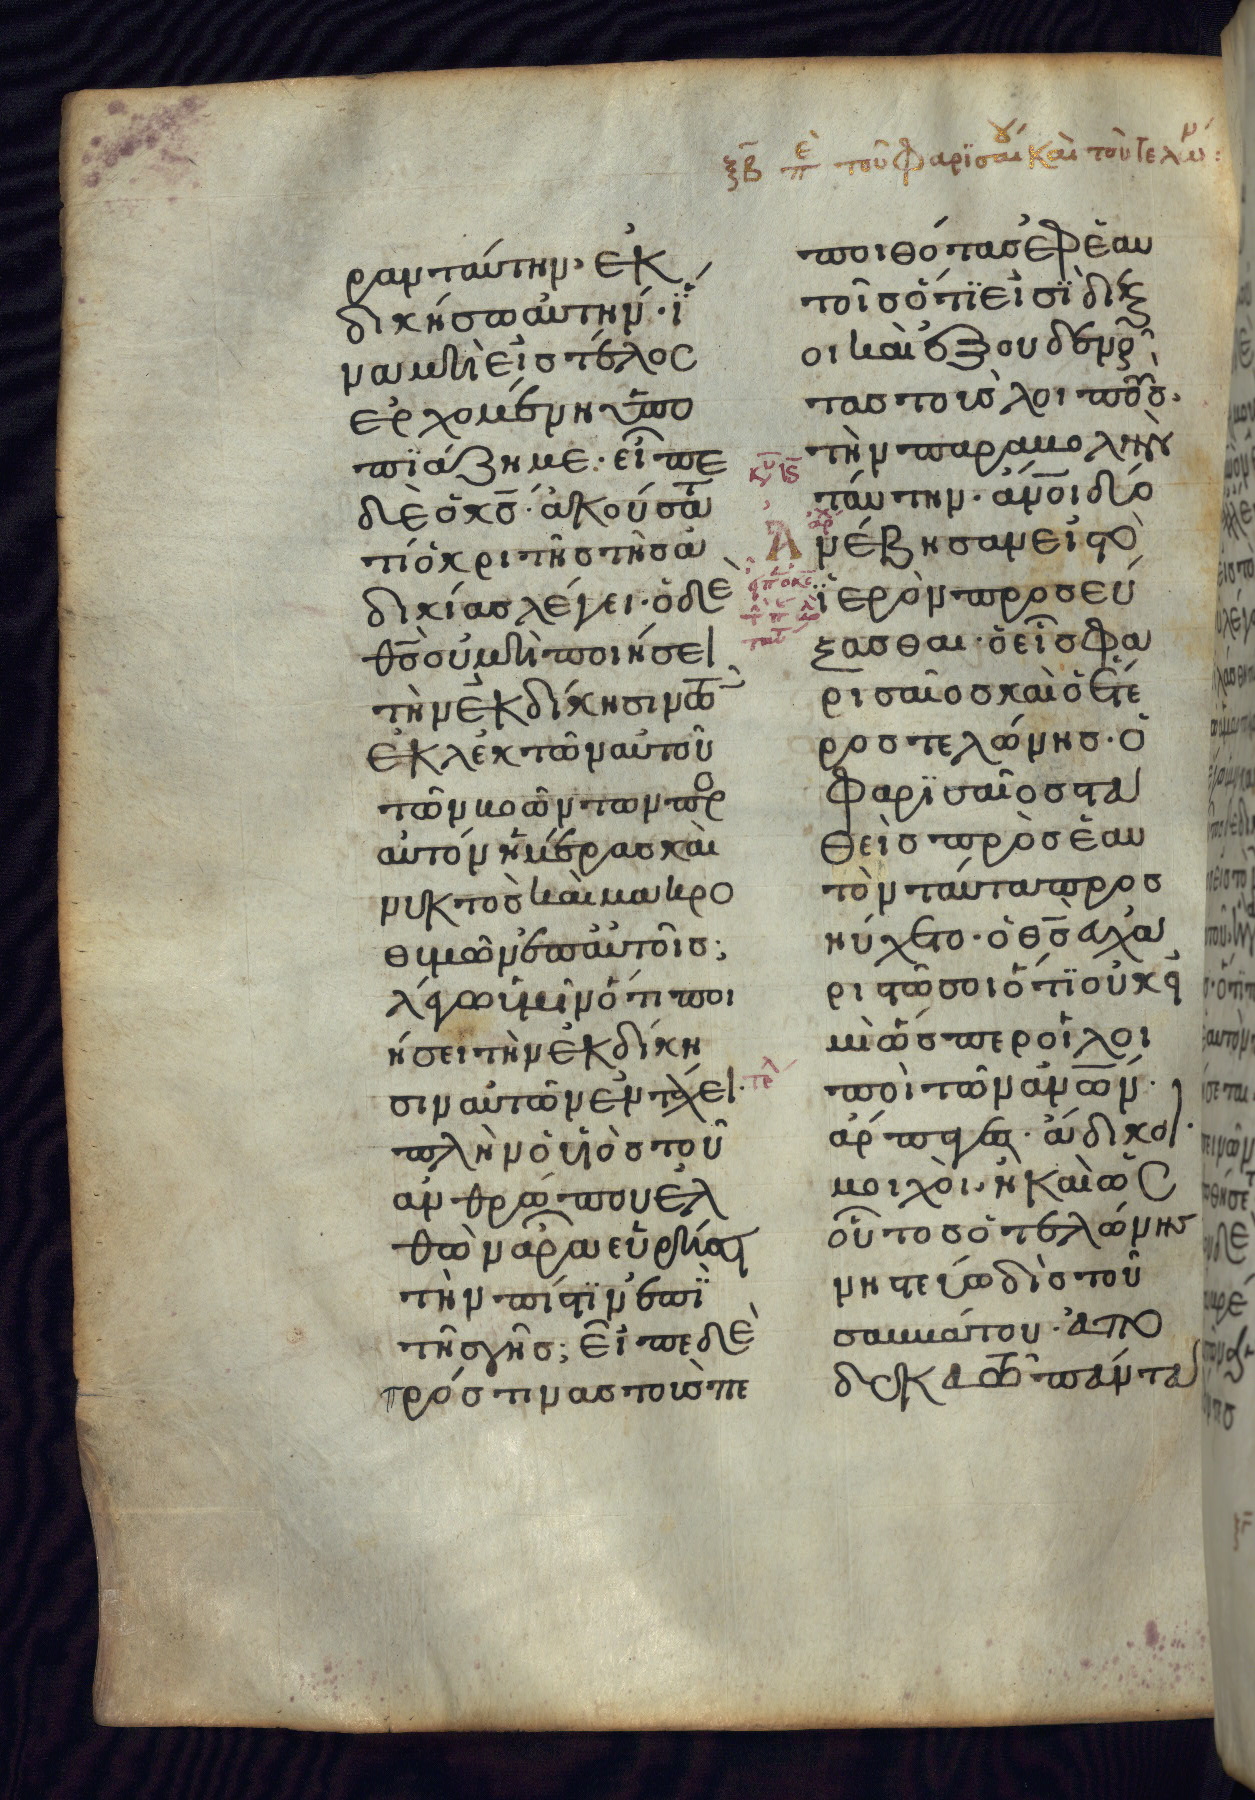 ξβ περὶ τοῦ Φαρϊσαίου καὶ τοῦ Τελών:
ραν ταύτην· ἐκ
δικήσω αὐτήν· ἵ
να μὴ εἰς τέλος
ἐρχομένη ὑπο
πϊάζη με· εἶπε
δὲ ὁ κς· ἀκούσατε
τί ὁ κριτὴς τῆς ἀ
δικίας λέγει· ὁ δὲ
θς οὐ μὴ ποιήσει
τὴν ἐκδίκησιν τῶν
ἐκλεκτῶν αὐτοῦ
τῶν βοώντων πρ
αὐτὸν ἡμέρας καὶ
νυκτὸς καὶ μακρο
θυμῶν ἐπ αὐτοῖς;
λέγω ὑμῖν ὅτι ποι
ήσει τὴν ἐκδίκη
σιν αὐτῶν ἐν τάχει·
πλὴν ὁ υἱὸς τοῦ
ἀνθρώπου ἐλ
θὼν ἆρα εὑρήσει
τὴν πίστϊν ἐπὶ
τῆς γῆς; εἶπε δὲ
πρός τινας τοὺς πε
ποιθότας ἐφ ἑαυ
τοῖς ὅτϊ εἰσὶ δίκαι
οι καὶ ἐξουθενοῦν
τας τοὺς λοιπούς·
τὴν παραβολὴν
ταύτην· ἄνοι δύο
ἀνέβησαν εἰς τὸ
ἱερὸν προσεύ
ξασθαι· ὁ εἷς Φα
ρισαῖος καὶ ὁ ἕτε
ρος τελώνης· ὁ
Φαρϊσαῖος στα
θεὶς πρὸς ἑαυ
τὸν ταῦτα προσ
ηύχετο· ὁ θς εὐχα
ριστῶ σοι ὅτϊ οὐκ εἰ
μὶ ὥσπερ οἱ λοι
ποὶ τῶν ἀνων·
ἅρπαγες· ἄδικοι·
μοιχοὶ· ἢ καὶ ὡς
οὗτος ὁ τελώνης
νηστεύω δὶς τοῦ
σαββάτου· ἀπο
δεκατῶ πάντα